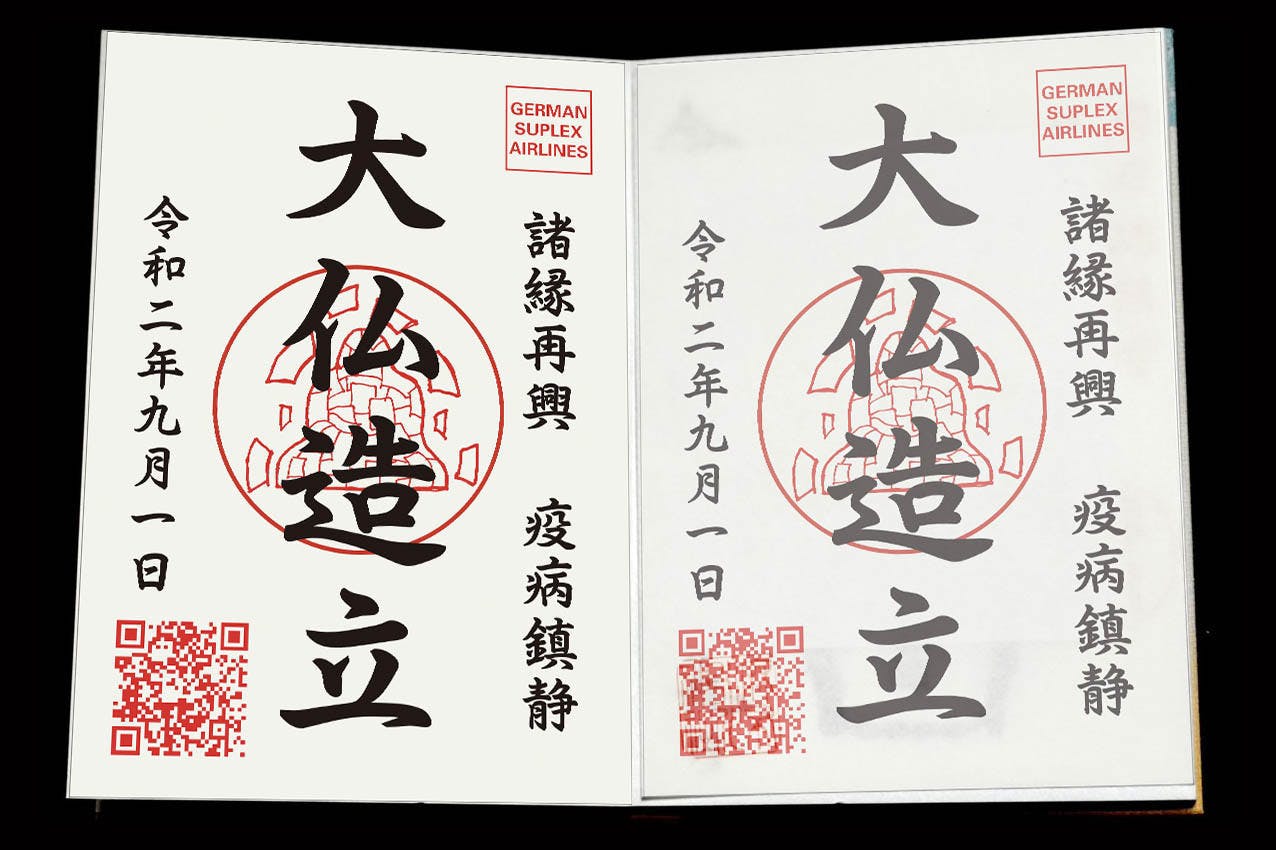 GERMAN
SUPLEX
AIRLINES
諸縁再興　疫病鎮静
大仏造立
令和二年九月一日
GERMAN
SUPLEX
AIRLINES
諸縁再興　疫病鎮静
大仏造立
令和二年九月一日